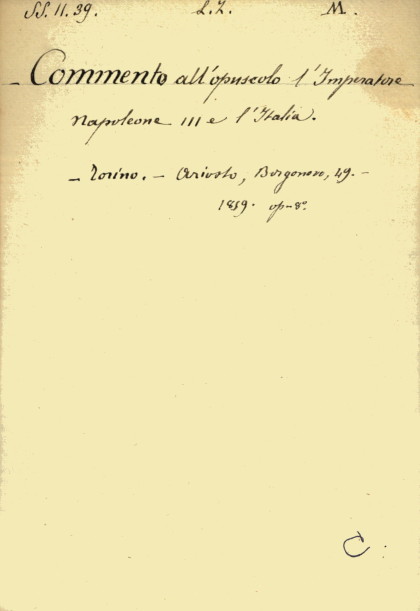 SS. 11. 39. L.I. M.
- Commento all'opuscolo l'Imperatore
Napoleone III e l'Italia.
- Torino. - Ariosto, Borgonovo, 49. -
1859. op-8º.
C.